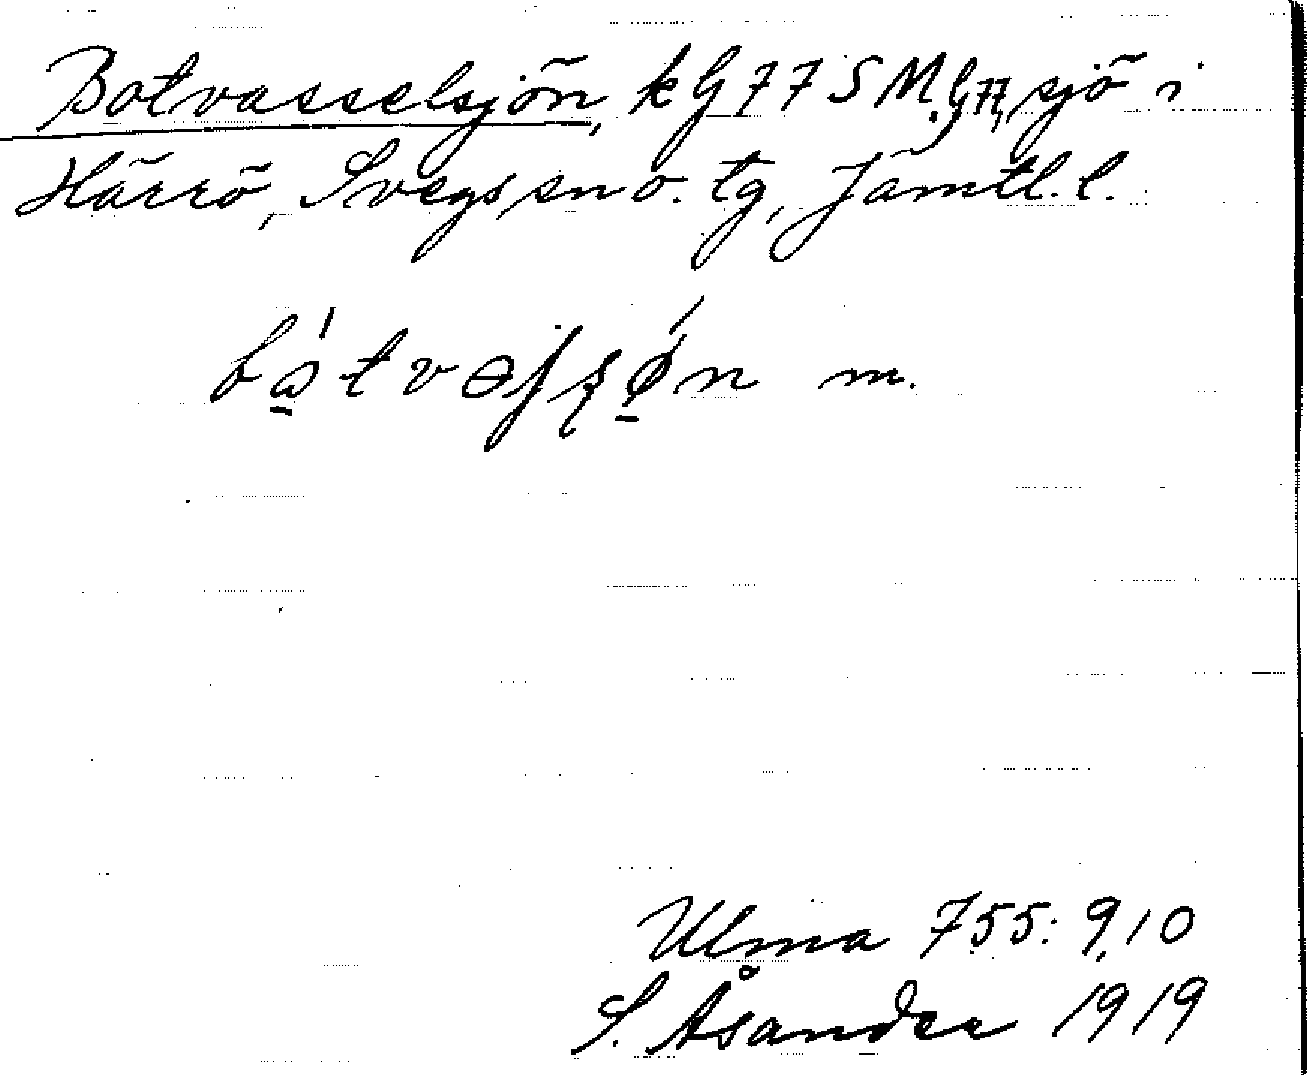 Botvasselsjön, k G 77 S M. G 77, sjö i
Härrö, Svegs sn o. tg, Jämtl. l.
m.
Ulma 755: 9, 10
S. Åsander 1919